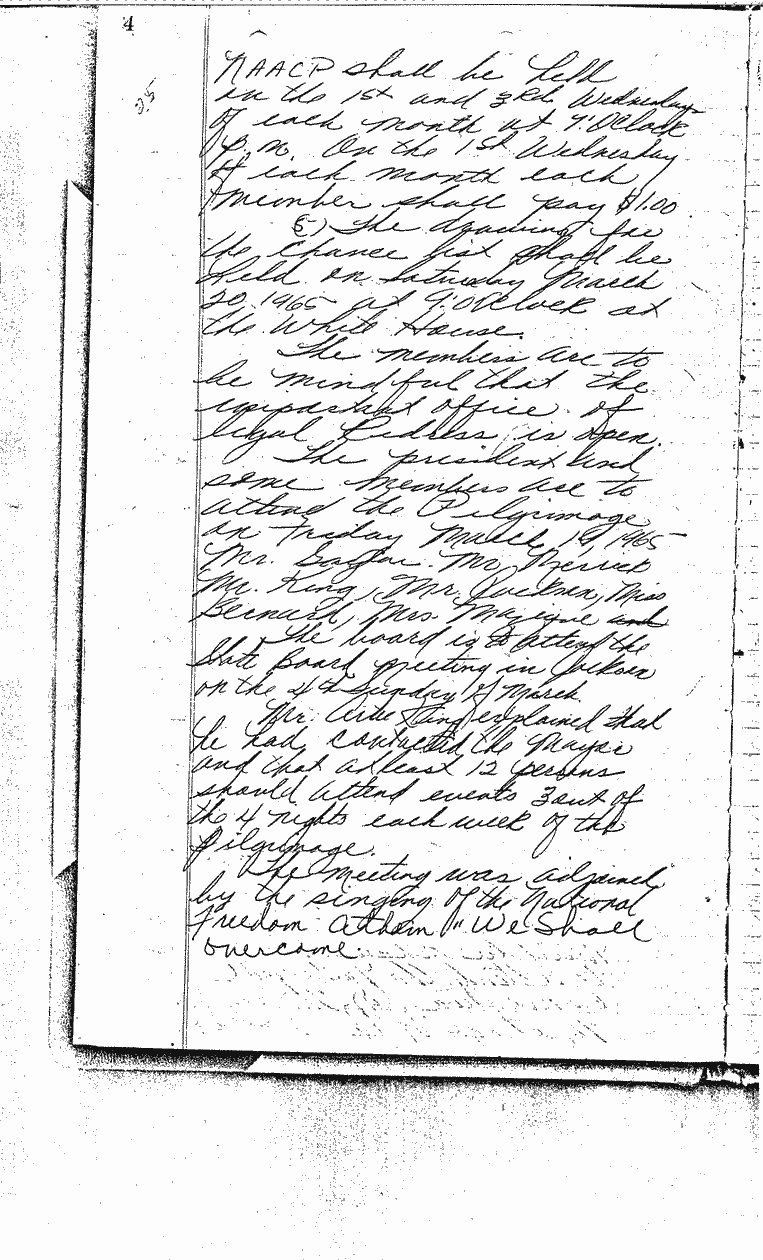 4
25
NAACP shall be held
on the 1st and 3Rd Wednesday
of each month at 7:OClock
p.m. On the 1st Wednesday
of each month each
member shall pay $1.00
5) The drawing for
the chance list shall be
held on Saturday March
20, 1965 at 9:OClock at
the White House.
The members are to
be mindful that the
important office of
legal Redress is open.
The president and
some members are to
attend the Pilgrimage
on Friday March 19, 1965
Mr. Mr.
Mr. King, Mr. Jackson, Miss
Bernard, Mrs. and
The board is to attend the
State Board meeting in Jackson
on the 4th Sunday of March.
Mr. King explained that
he had contacted the Mayor
and that at least 12 persons
should attend events 3 out of
the 4 nights each week of the
pilgrimage.
The meeting was adjained
by the singing of the National
Freedom Athem "We Shall
overcome.